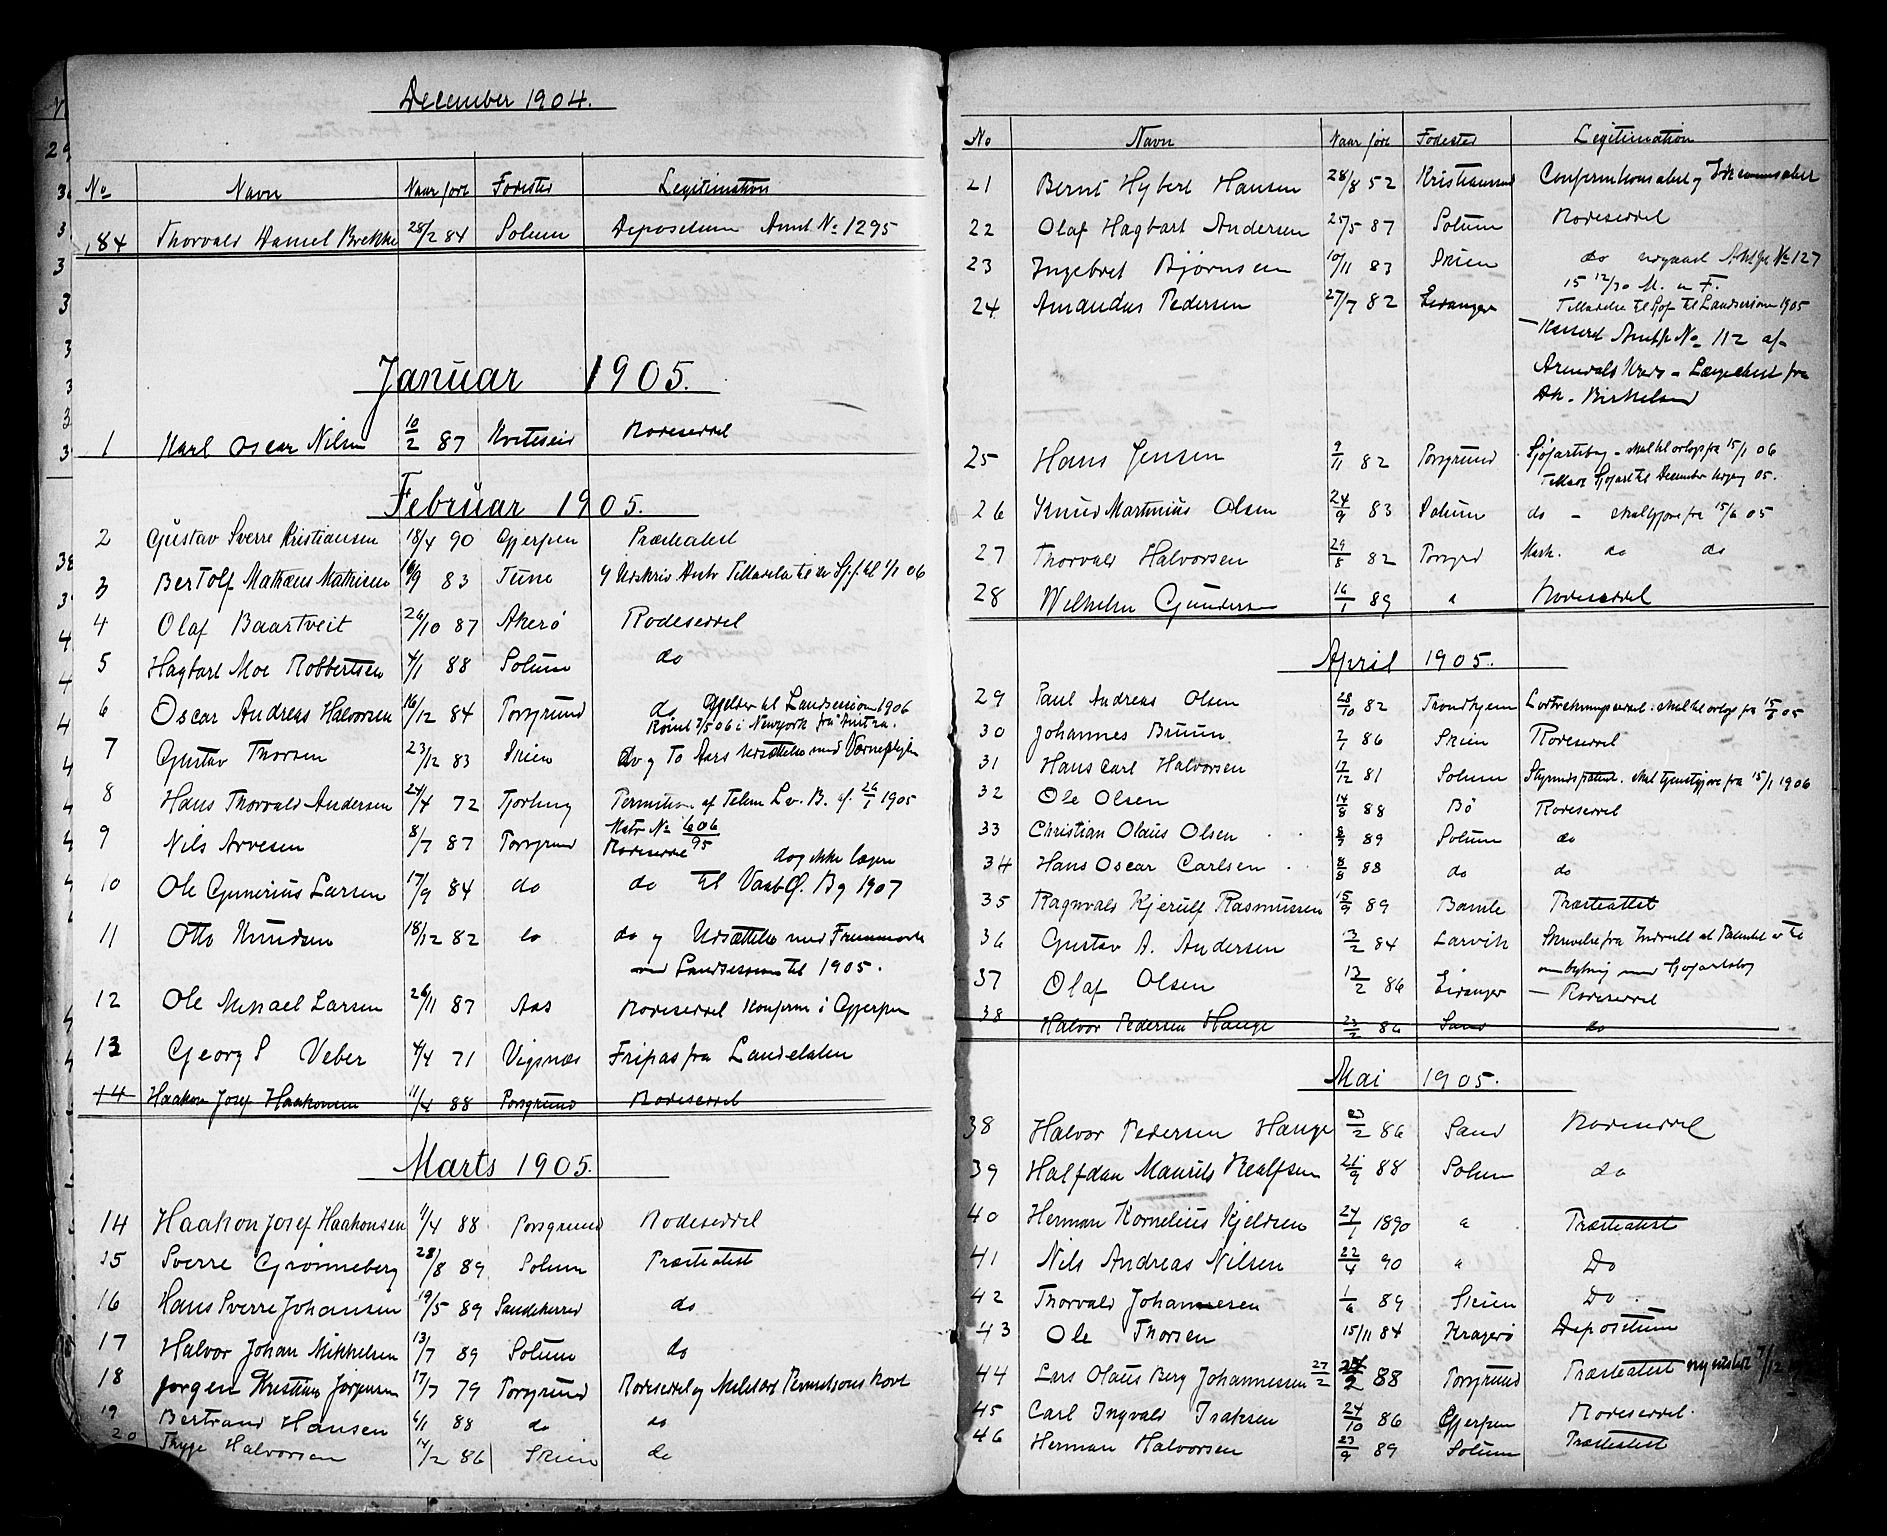 December 1904.
No Navn Naar født Fødested Legitimation
184 Thorvald Daniel Brekke 28/2 84 Solum Depositum Anmt No 1295
Januar 1905.
1 Karl Oscar Nilsen 10/2 87 Hviteseid Rodeseddel
Februar 1905.
2 Gustav Sverre Kristiansen 18/4 90 Gjerpen Præsteatest
3 Bertolf Mathæus Mathisen 16/9 83 Tune Tilladelse til 1/1 06
4 Olaf Baartveit 26/10 87 Akerø Rodeseddel
5 Hagbart Moe Robbertsen 4/1 88 Solum do
6 Oscar Andreas Halvorsen 16/12 84 Porsgrund do Gjelder til Landsession 1906
Rømt 7/5 06 i Newyork fra
7 Gustav Thorsen 23/12 83 Skien do og To Aars Udsættelse med Værnepligten
8 Hans Thorvald Andersen 24/4 72 Tjørling Permition af Telem L.v. B. af. 26/1 1905
Matr No 606/95
9 Nils Arvesen 8/7 87 Porsgrund Rodeseddel dog ikke længere
10 Ole Gunerius Larsen 17/9 84 do do til 1907
11 Otto Knudsen 18/12 82 do do og Udsættelse med Fremmøde
ved Landsession til 1905.
12 Ole Mikael Larsen 26/11 87 Aas Rodeseddel Konfirm i Gjerpen
13 Georg S Veber 4/4 71 Vigsnæs Fripas fra Landelsten
14 Haakon Josef Haakonsen 11/4 88 Porsgrund Rodeseddel
Marts 1905.
14 Haakon Josef Haakonsen 11/4 88 Porsgrund Rodeseddel
15 Sverre Grønneberg 28/8 89 Solum Præsteatest
16 Hans Sverre Johansen 19/5 89 Sandeherred do
17 Halvor Johan Mikkelsen 13/7 89 Solum do
18 Jørgen Kristian Jørgensen 17/7 79 Porsgrund Rodeseddel og Militær Permitions
19 Bertrand Hansen 6/11 88 do do
20 Thyge Halvorsen 14/2 86 Skien do
No Navn Naar født Fødested Legitimation
21 Bernt Hybert Hansen 28/8 52 Kristiansund Confirmtionsatest og
22 Olaf Hagbart Andersen 25/5 87 Solum Rodeseddel
23 Ingebret Bjørnsen 10/11 83 Skien do No 127
15 12/30 M. u F.
24 Amandus Pedersen 27/7 82 Eidanger Tilladelse til Sjøf til Landsession 1905
No 112 af
Arendals Kreds - Lægeatest fra
Dr. Birkeland
25 Hans Jensen 9/11 82 Porsgrund Sjøfartsbog - skal til orlogs fra 15/1 06
Sjøfart til December 05.
26 Knud Martinius Olsen 24/9 83 Solum do - fra 15/6 05
27 Thorvald Halvorsen 29/8 82 Porsgrd Mask. do do
28 Wilhelm Gundersen 16/1 89 " Rodeseddel
April 1905.
29 Paul Andreas Olsen 28/10 82 Trondhjem skal til orlogs fra 15/6 05
30 Johannes Bruun 2/1 86 Skien Rodeseddel
31 Hans Carl Halvorsen 17/12 81 Solum Styrmdspatent. skal tjenstgjøre fra 15/1 1906
32 Ole Olsen 14/8 88 Bø Rodeseddel
33 Christian Olaus Olsen 8/9 89 Solum do
34 Hans Oscar Carlsen 8/8 88 do do
35 Ragnvald Kjerulf Rasmussen 15/9 89 Bamle Præsteattest
36 Gustav A. Andersen 13/2 84 Larvik Skrivelse fra Indrull at Patentet er til
ombytning med Sjøfartsbog
37 Olaf Olsen 13/2 86 Eidanger - Rodeseddel
38 Halvor Pedersen Hauge 23/2 86 Sand do
Mai 1905.
38 Halvor Pedersen Hauge 23/2 86 Sand Rodeseddel
39 Halfdan Maurits Realfsen 21/9 88 Solum do
40 Herman Kornelius Kjeldsen 24/1 1890 " Præsteatest
41 Nils Andreas Nilsen 22/4 90 " Do
42 Thorvald Johannesen 1/6 89 Skien Do.
43 Ole Thorsen 15/11 84 Kragerø Depositum
44 Lars Olaus Berg Johannessen 27/2 27/2 88 Porsgrund Præsteatest
45 Carl Ingvald Isaksen 24/10 86 Gjerpen Rodeseddel.
46 Herman Halvorsen 23/9 89 Solum Præsteatest